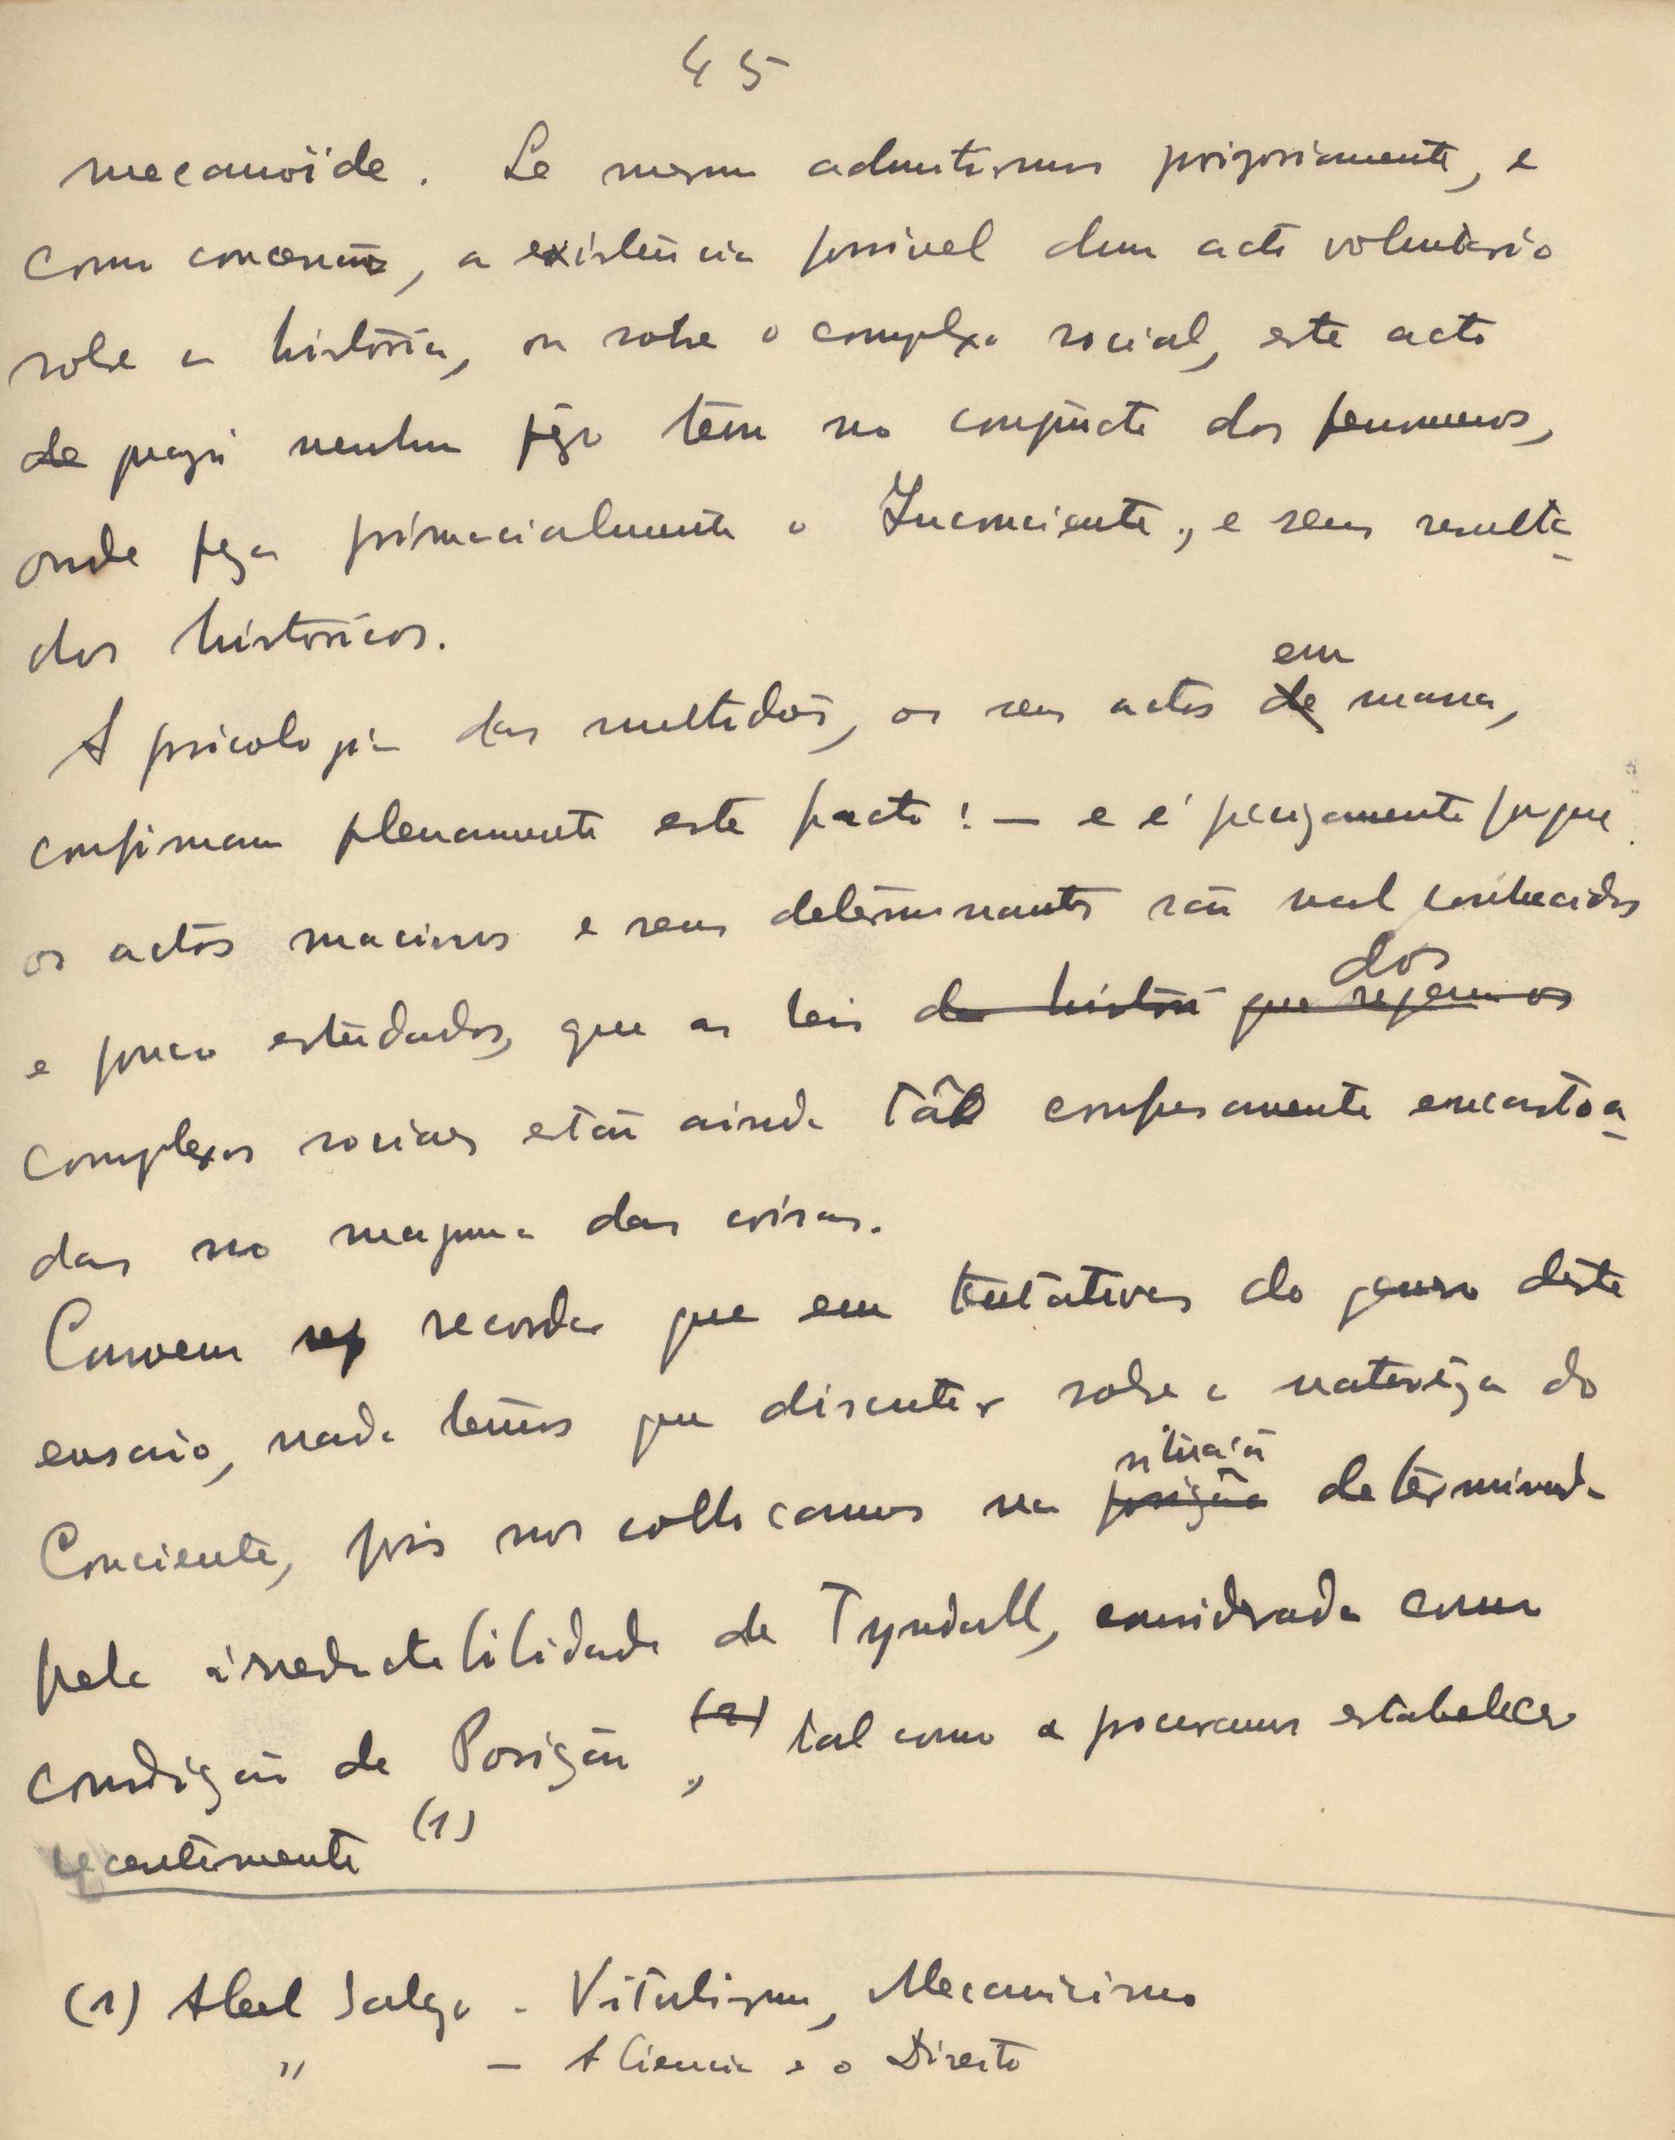 45
mecanoïde. Se mesmo admitirmos
como concessão, a existência possivel dum acto voluntario
sobre a história, ou sobre o complexo social, este acto
de nenhum pêso têm no conjuncto dos fenomenos,
onde pesa primacialmente o Inconciente, e seus resulta-
dos históricos.
A psicologia das multidões, os seus actos em massa,
confirmam plenamente este facto: — e é precizamente porque
os actos macissos e seus determinantes são mal conhecidos
e pouco estudados, que as leis da histori que regem os dos
complexos sociaes estão ainda tão confusamente encastoa-
das no magma das coisas.
Convem recordar que em tentativas do genero deste
ensaio, nada temos que discutir sobre a natureza do
Conciente, pois nos collocamos na posição situação determinada
pela irreductibilidade de Tyndall, considerada como
condição de Posição (2), tal como a procuramos estabelecer
recentemente (1)
(1) Abel Salazar - Vitalismo, Mecanicismo
" — A Ciencia e o Direito